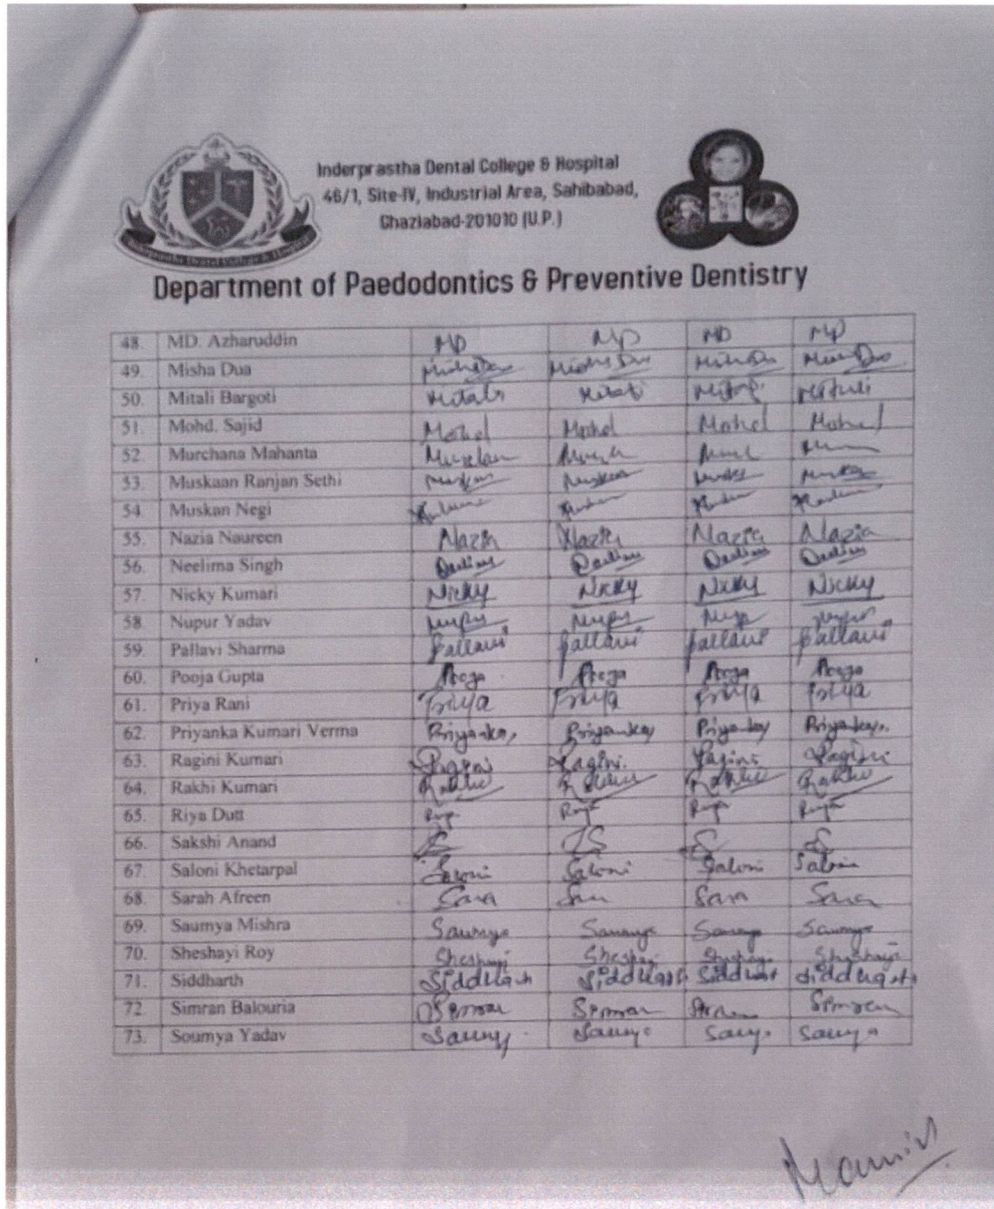 Inderprastha Dental College & Hospital
46/1, Site-IV, Industrial Area, Sahibabad,
Ghaziabad-201010 (U.P.)
Inderprastha Dental College & Hospital
Department of Paedodontics & Preventive Dentistry
48. MD. Azharuddin MD MD MD MD
49. Misha Dua Misha Dua Misha Dua Misha Dua
50. Mitali Bargoti Mitali Mitali
51. Mohd. Sajid Mohd Mohd Mohd Mohd
52. Murchana Mahanta
53. Muskaan Ranjan Sethi Muskan Muskan
54. Muskan Negi
55. Nazia Naureen Nazia Nazia Nazia Nazia
56. Neelima Singh
57. Nicky Kumari Nicky Nicky Nicky Nicky
58. Nupur Yadav Nupur Nupur
59. Pallavi Sharma Pallavi Pallavi Pallavi Pallavi
60. Pooja Gupta Pooja Pooja Pooja Pooja
61. Priya Rani Priya Priya Priya Priya
62. Priyanka Kumari Verma Priyanka Priyanka Priyanka Priyanka
63. Ragini Kumari Ragini Ragini Ragini Ragini
64. Rakhi Kumari Rakhi Rakhi Rakhi
65. Riya Dutt Riya Riya Riya Riya
66. Sakshi Anand S S
67. Saloni Khetarpal Saloni Saloni Saloni Saloni
68. Sarah Afreen Sara Sara Sara
69. Saumya Mishra Saumya Saumya Saumya Saumya
70. Sheshayi Roy Sheshayi Sheshayi Sheshayi Sheshayi
71. Siddharth Siddharth Siddharth Siddharth Siddharth
72. Simran Balouria Simran Simran Simran
73. Soumya Yadav Saumy Saumya Saumya Saumya